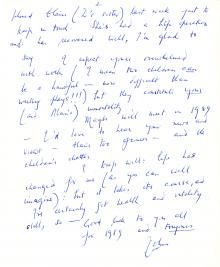 phoned Elaine (Z's sister) last week just to
keep in touch. She's had a hip operation
and has recovered well, I'm glad to
say. I expect you're overwhelmed
with work (I mean two children can
be a handful — more difficult than
writing plays!!!) but they constitute yours
(and Alan's) immortality.
Maybe will meet in 1989
— I'd love to hear your news and
views — there too growses — and the
children's chatter.
I keep well: life has
changed for me (as you can well
imagine) but it takes its course, and
I've certainly got health and vitality
still, so — Good luck to you all
for 1989 and forever
John